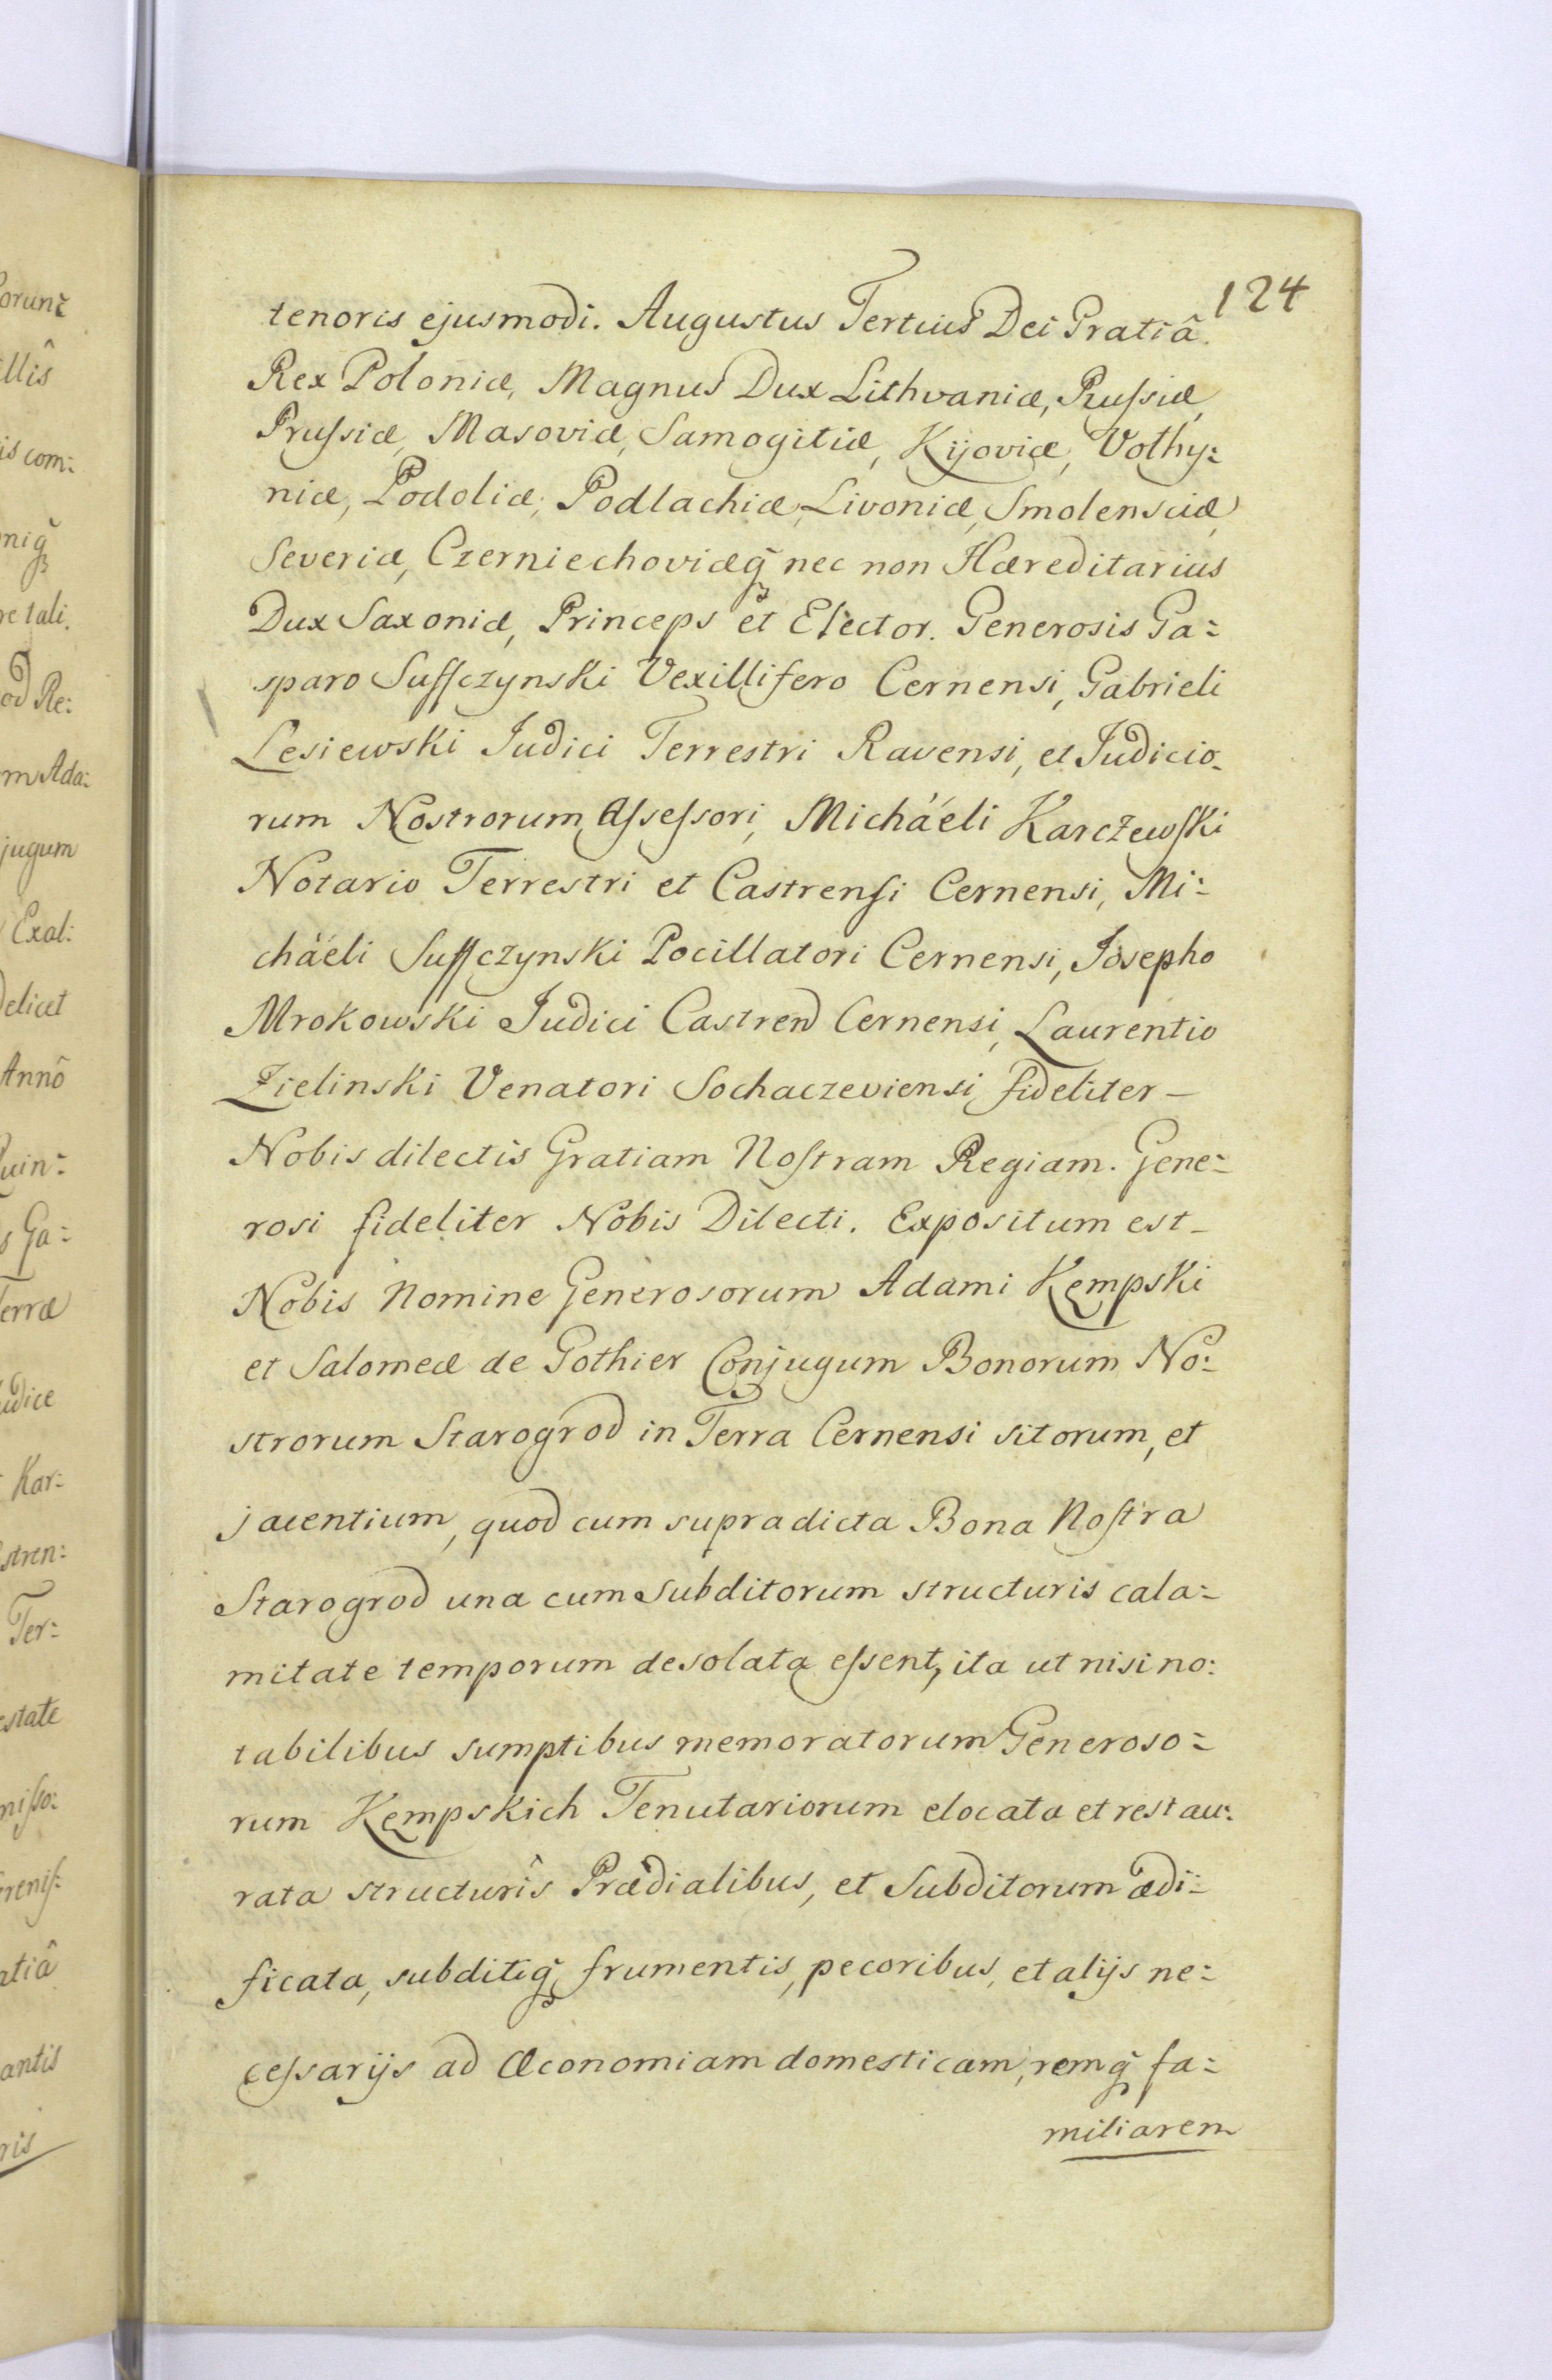 124
tenoris ejusmodi. Augustus Tertius Dei Gratiâ.
Rex Poloniæ, Magnus Dux Lithvaniæ, Rußiæ,
Prußiæ, Masoviæ, Samogitiæ, Kijoviæ, Volhy=
niæ, Podoliæ, Podlachiæ, Livoniæ, Smolensciæ,
Severiæ, Czerniechoviæq̃ nec non Hæreditarius
Dux Saxoniæ, Princeps et Elector. Generosis Ga=
sparo Suffczynski Vexillifero Cernensi, Gabrieli
Lesiewski Judici Terrestri Ravensi, et Judicio-
rum Nostrorum Aſseſsori, Micháéli Karczewſki
Notario Terrestri et Castrenſi Cernensi, Mi=
cháéli Suffczynski Pocillatori Cernensi, Josepho
Mrokowski Judici Castren Cernensi, Laurentio
Zielinski Venatori Sochaczeviensi, fideliter –
Nobis dilectis Gratiam Noſtram Regiam. Gene=
rosi fideliter Nobis Dilecti. Expositum est –
Nobis Nomine Generosorum Adami Kempski
et Salomeæ de Gothier Conjugum Bonorum No=
strorum Starogrod in Terra Cernensi sitorum, et
jacentium, quod cum supradicta Bona Noſtra
Starogrod una cum Subditorum structuris cala=
mitate temporum desolata eſsent, ita ut nisi no=
tabilibus sumptibus memoratorum Generoso=
rum Kempskich Tenutariorum elocata et restau=
rata structurîs Prædialibus, et Subditorum ædi=
ficata, subditiq̃ frumentis, pecoribus, et alijs ne=
ceſsarijs ad Œconomiam domesticam, remq̃ fa=
miliarem
orun=
illîs
is com:
niq̃
re tali.
od Re:
m Ada:
jugum
Exal:
delicet
Annô
Quin=
s Ga=
Terræ
udice
Kar=
stren=
Ter=
estate
niſso:
reniſ:
atiâ
antis
ris